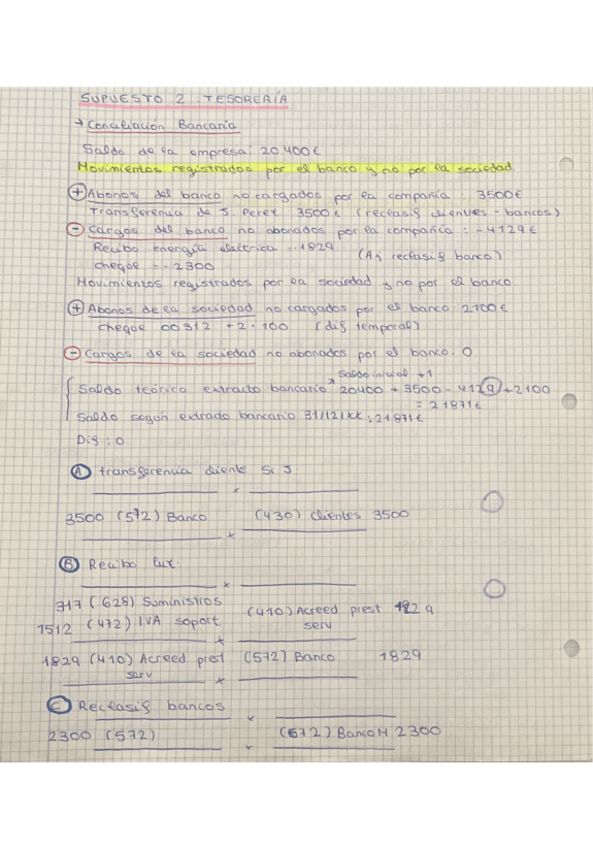 SUPUESTO 2 : TESORERÍA
→ Conciliación Bancaria
Saldo de la empresa: 20 400€
Movimientos registrados por el banco y no por la sociedad.
+ Abonos del banco no cargados por la compañía : 3500€
Transferencia de J. Perez 3500€ (reclasif clientes - bancos)
- Cargos del banco no abonados por la compañía : -4129€
Recibo energía eléctrica - 1829
(Aj reclasif banco)
cheque = - 2300
Movimientos registrados por la sociedad y no por el banco.
+ Abonos de la sociedad no cargados por el banco 2100€
cheque 00312 +2·100 (dif temporal)
- Cargos de la sociedad no abonados por el banco. 0
saldo inicial +1
Saldo teórico extracto bancario 20400 + 3500 - 4129 + 2100
= 21871€
Saldo según extracto bancario 31/12/XX : 21871€
Dif : 0
A transferencia cliente Sr J.
x
3500 (572) Banco (430) Clientes 3500
x
B Recibo luz.
x
317 (628) Suministros
1512 (472) IVA soport (410) Acreed prest serv 1829
x
1829 (410) Acreed prest serv (572) Banco 1829
x
C Reclasif bancos
x
2300 (572) (572) Banco N 2300
x